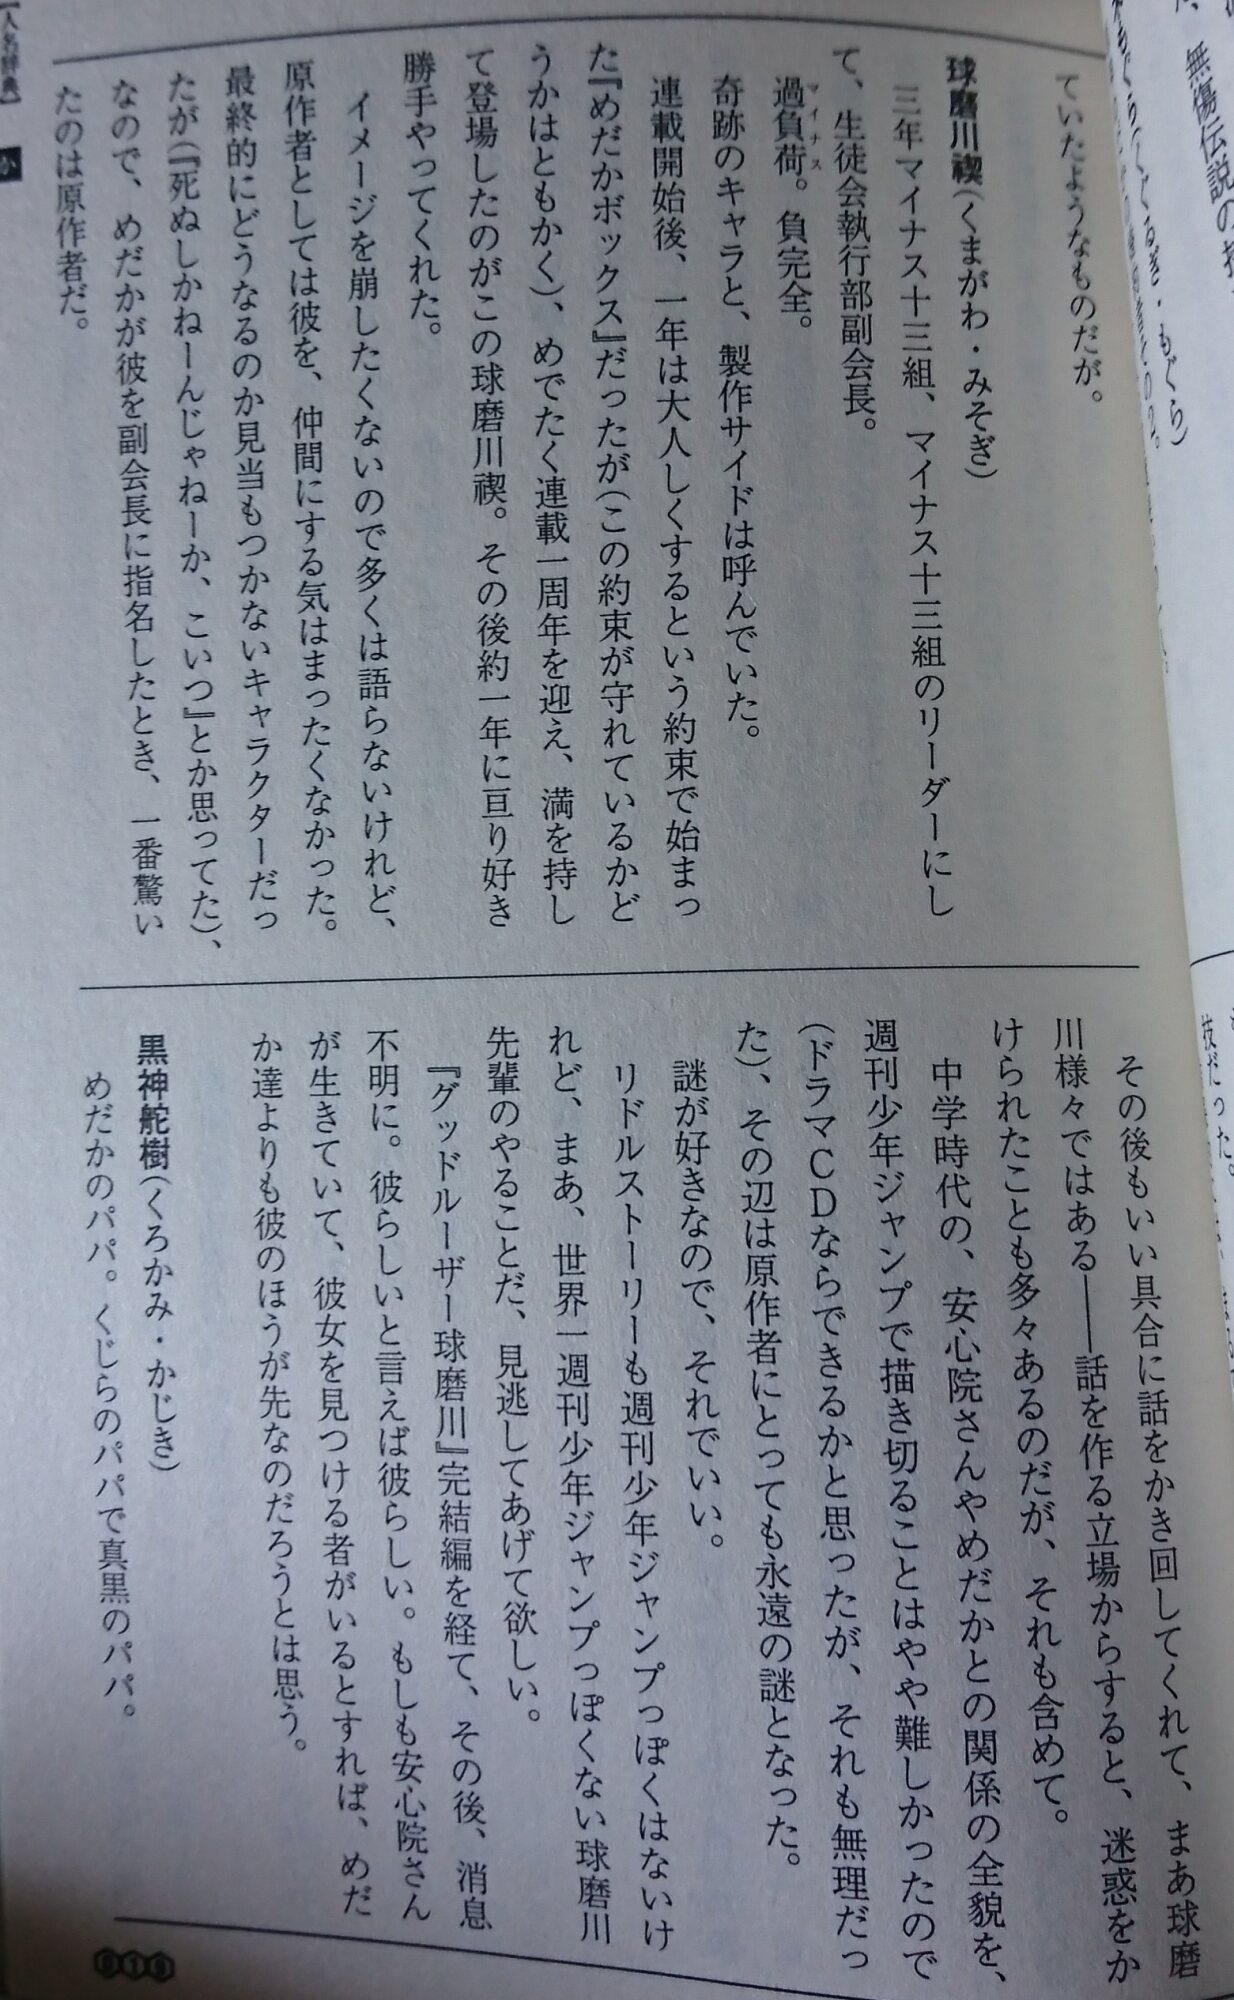 無傷伝説の
ていたようなものだが。
球磨川禊(くまがわ・みそぎ)
三年マイナス十三組、マイナス十三組のリーダーにし
て、生徒会執行部副会長。
過負荷。負完全。
マイナス
奇跡のキャラと、製作サイドは呼んでいた。
連載開始後、一年は大人しくするという約束で始まっ
た『めだかボックス』だったが(この約束が守れているかど
うかはともかく)、めでたく連載一周年を迎え、満を持し
て登場したのがこの球磨川禊。その後約一年に亘り好き
勝手やってくれた。
イメージを崩したくないので多くは語らないけれど、
原作者としては彼を、仲間にする気はまったくなかった。
最終的にどうなるのか見当もつかないキャラクターだっ
たが(『死ぬしかねーんじゃねーか、こいつ』とか思ってた)、
なので、めだかが彼を副会長に指名したとき、一番驚い
たのは原作者だ。
【人名辞典】 か
技だった。
その後もいい具合に話をかき回してくれて、まあ球磨
川様々ではある――話を作る立場からすると、迷惑をか
けられたことも多々あるのだが、それも含めて。
中学時代の、安心院さんやめだかとの関係の全貌を、
週刊少年ジャンプで描き切ることはやや難しかったので
(ドラマCDならできるかと思ったが、それも無理だっ
た)、その辺は原作者にとっても永遠の謎となった。
謎が好きなので、それでいい。
リドルストーリーも週刊少年ジャンプっぽくはないけ
れど、まあ、世界一週刊少年ジャンプっぽくない球磨川
先輩のやることだ、見逃してあげて欲しい。
『グッドルーザー球磨川』完結編を経て、その後、消息
不明に。彼らしいと言えば彼らしい。もしも安心院さん
が生きていて、彼女を見つける者がいるとすれば、めだ
か達よりも彼のほうが先なのだろうとは思う。
黒神舵樹(くろかみ・かじき)
めだかのパパ。くじらのパパで真黒のパパ。
016